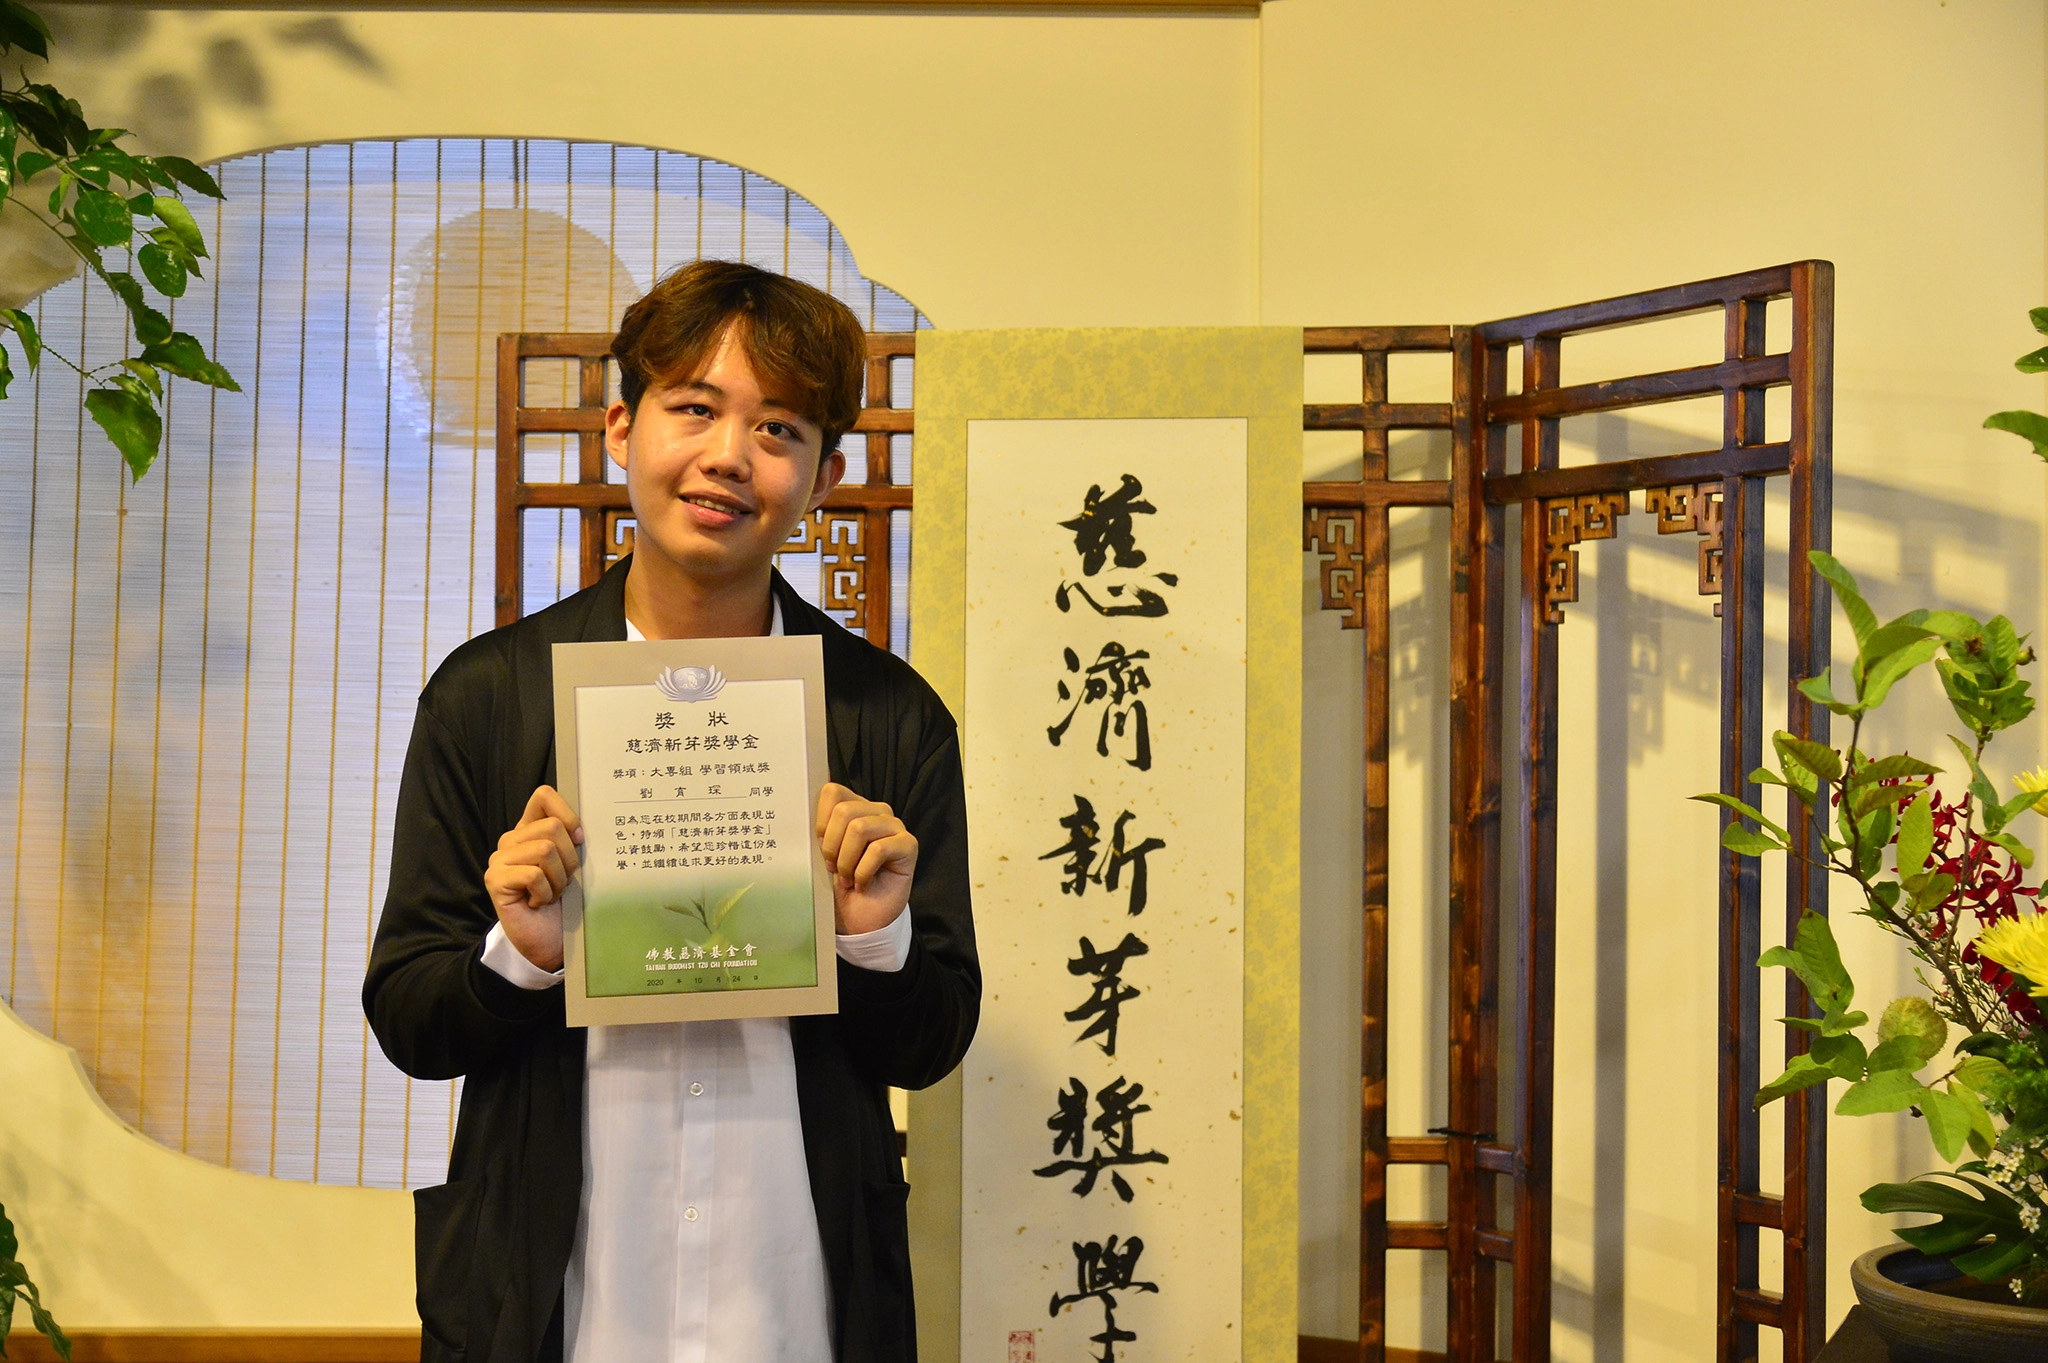 獎 狀
慈濟新芽獎學金
獎項：大專組 學習領域獎
劉 育 琛 同學
因為您在校期間各方面表現出
色，特頒「慈濟新芽獎學金」
以資鼓勵，希望您珍惜這份榮
譽，並繼續追求更好的表現。
佛教慈濟基金會
TAIWAN BUDDHIST TZU CHI FOUNDATION
2020 年 10 月 24 日
慈濟新芽獎學